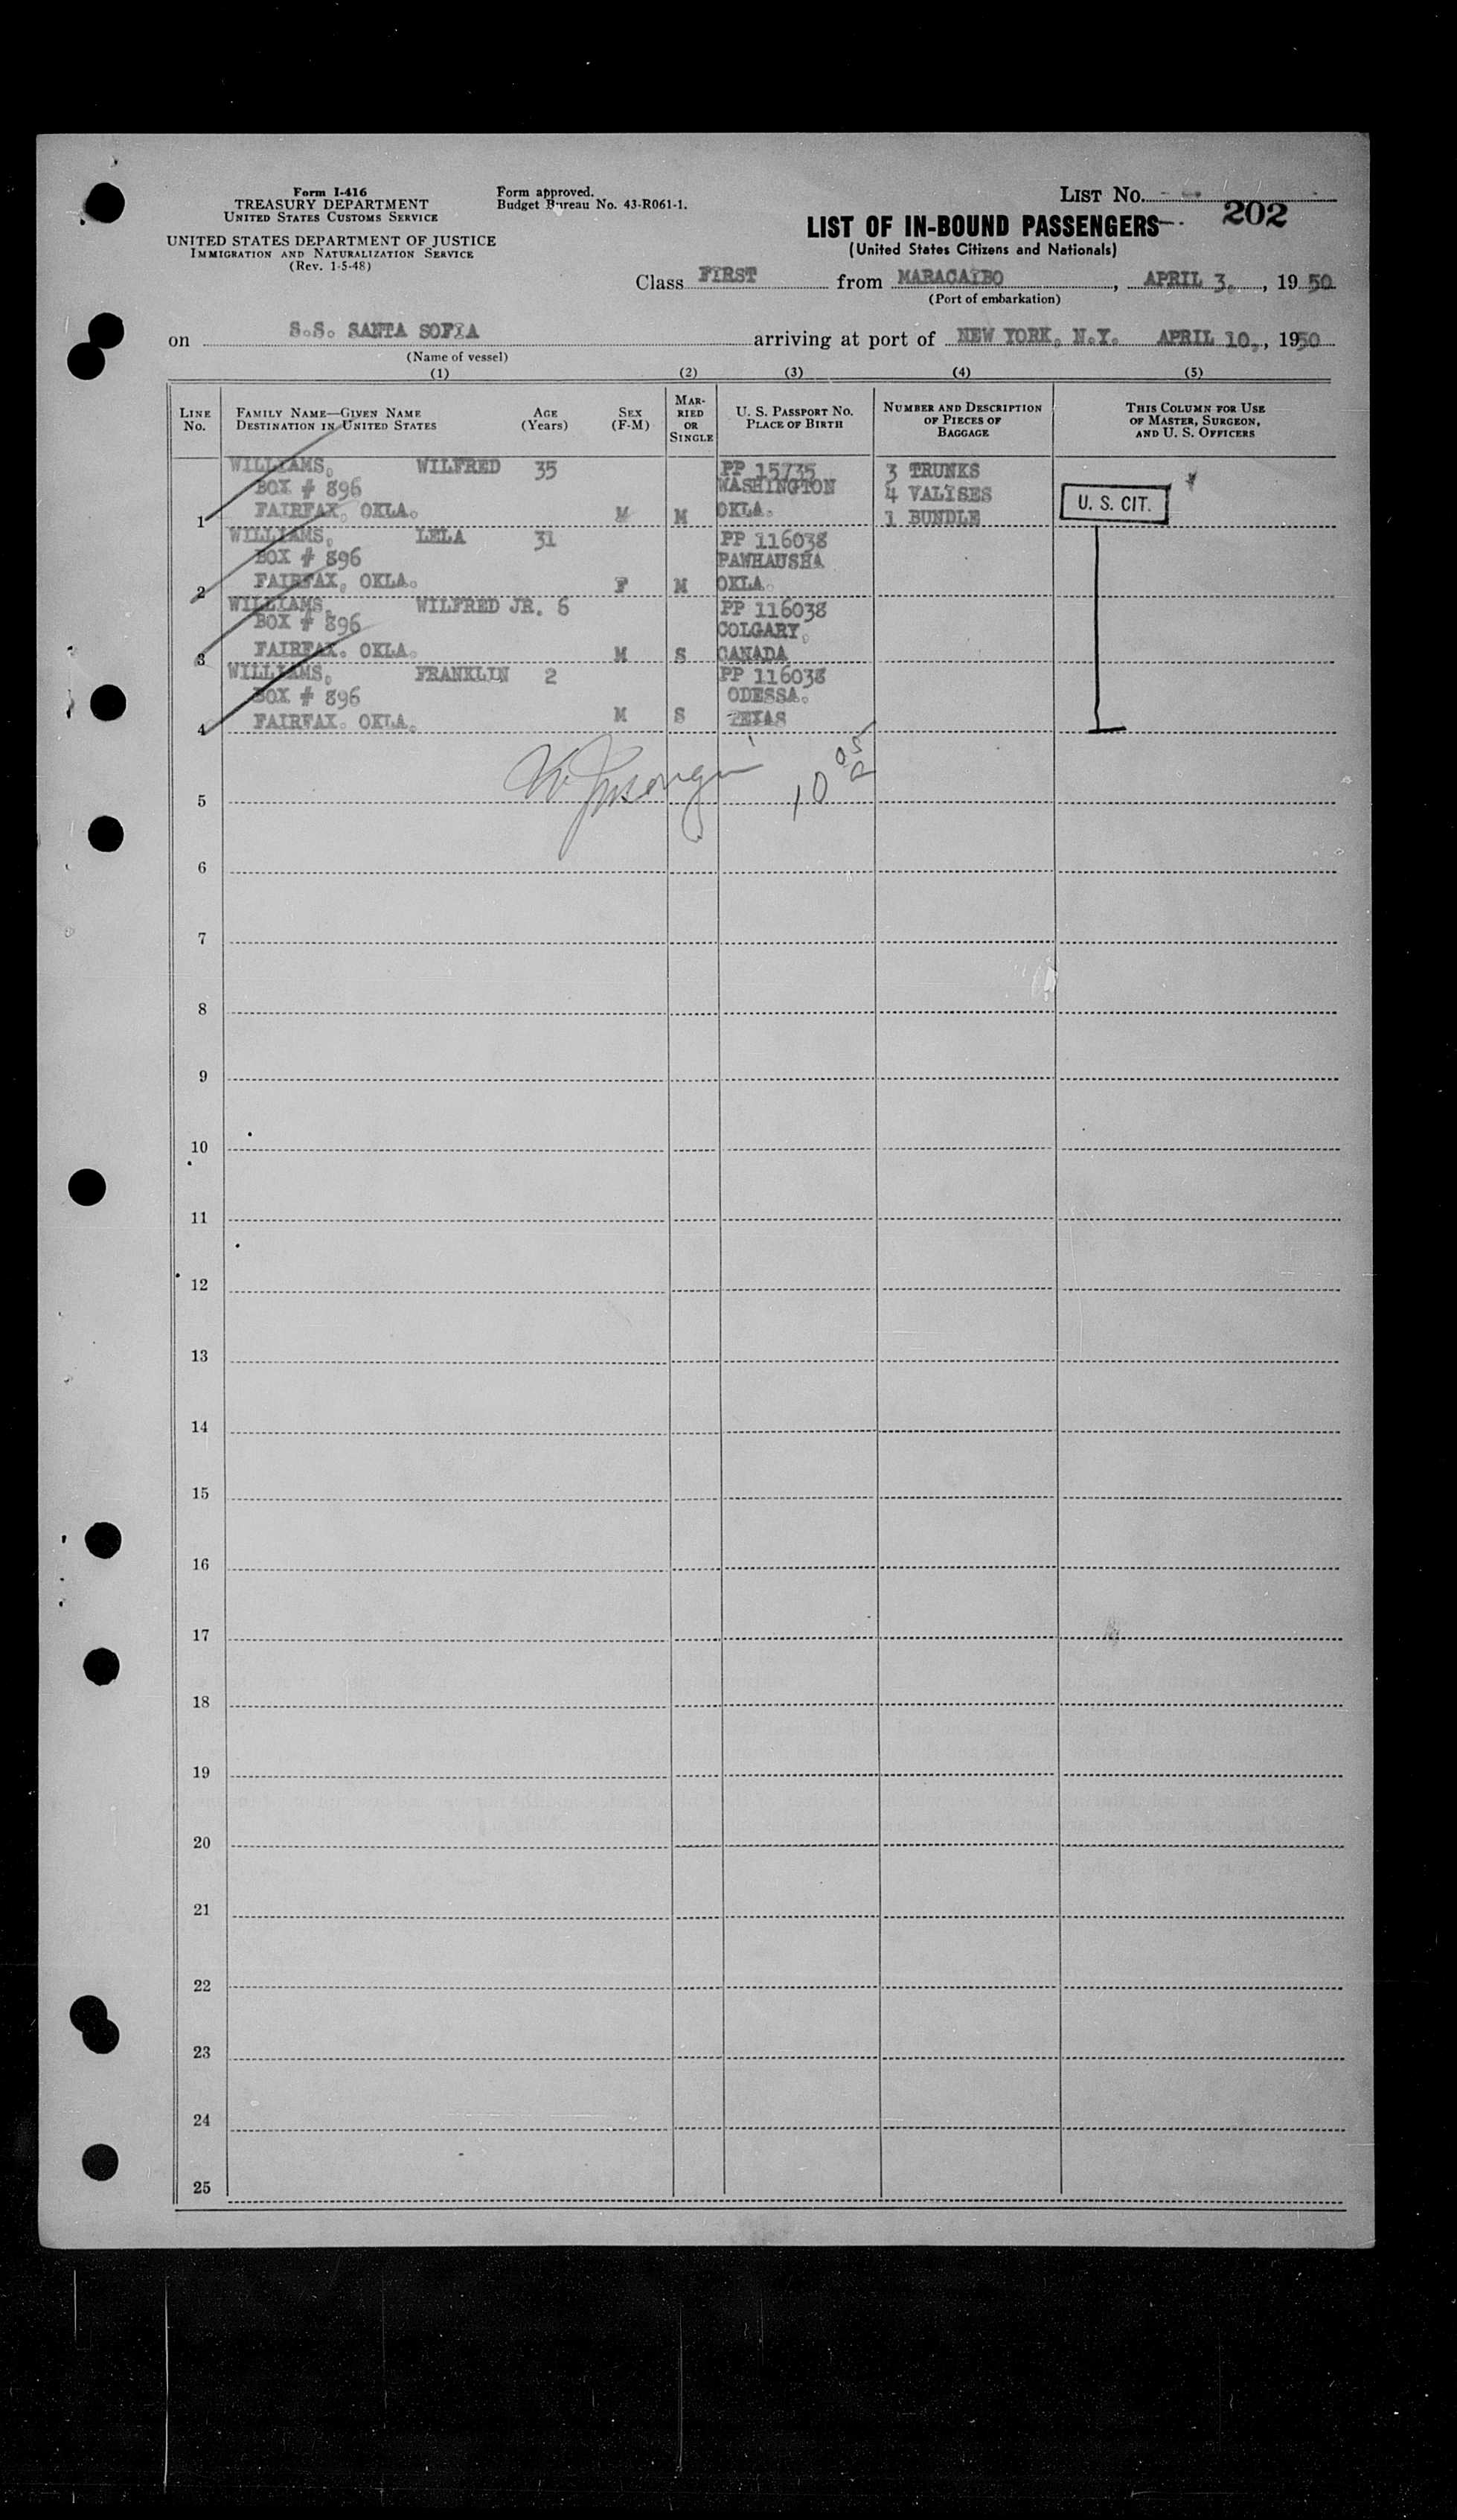 Form I-416
TREASURY DEPARTMENT
UNITED STATES CUSTOMS SERVICE
UNITED STATES DEPARTMENT OF JUSTICE
IMMIGRATION AND NATURALIZATION SERVICE
(Rev. 1-5-48)
Form approved.
Budget Bureau No. 43-R061-1.
LIST NO.
202
LIST OF IN-BOUND PASSENGERS
(United States Citizens and Nationals)
Class FIRST from MARACAIBO, APRIL 3, 1950
(Port of embarkation)
on S.S. SANTA SOFIA arriving at port of NEW YORK, N.Y. APRIL 10, 1950
(Name of vessel)
(1) (2) (3) (4) (5)
LINE No.
FAMILY NAME—GIVEN NAME
DESTINATION IN UNITED STATES
AGE (Years)
SEX (F-M)
MARRIED OR SINGLE
U. S. PASSPORT NO.
PLACE OF BIRTH
NUMBER AND DESCRIPTION
OF PIECES OF
BAGGAGE
THIS COLUMN FOR USE
OF MASTER, SURGEON,
AND U. S. OFFICERS
WILLIAMS, WILFRED 35 PP 15735 3 TRUNKS
BOX # 896 WASHINGTON 4 VALISES
1 FAIRFAX, OKLA. M M OKLA. 1 BUNDLE
U. S. CIT.
WILLIAMS, LELA 31 PP 116038
BOX # 896 PAWHAUSHA
2 FAIRFAX, OKLA. F M OKLA.
WILLIAMS, WILFRED JR. 6 PP 116038
BOX # 896 COLGARY,
3 FAIRFAX. OKLA. M S CANADA
WILLIAMS, FRANKLIN 2 PP 116038
BOX # 896 ODESSA.
4 FAIRFAX. OKLA. M S TEXAS
5
6
7
8
9
10
11
12
13
14
15
16
17
18
19
20
21
22
23
24
25